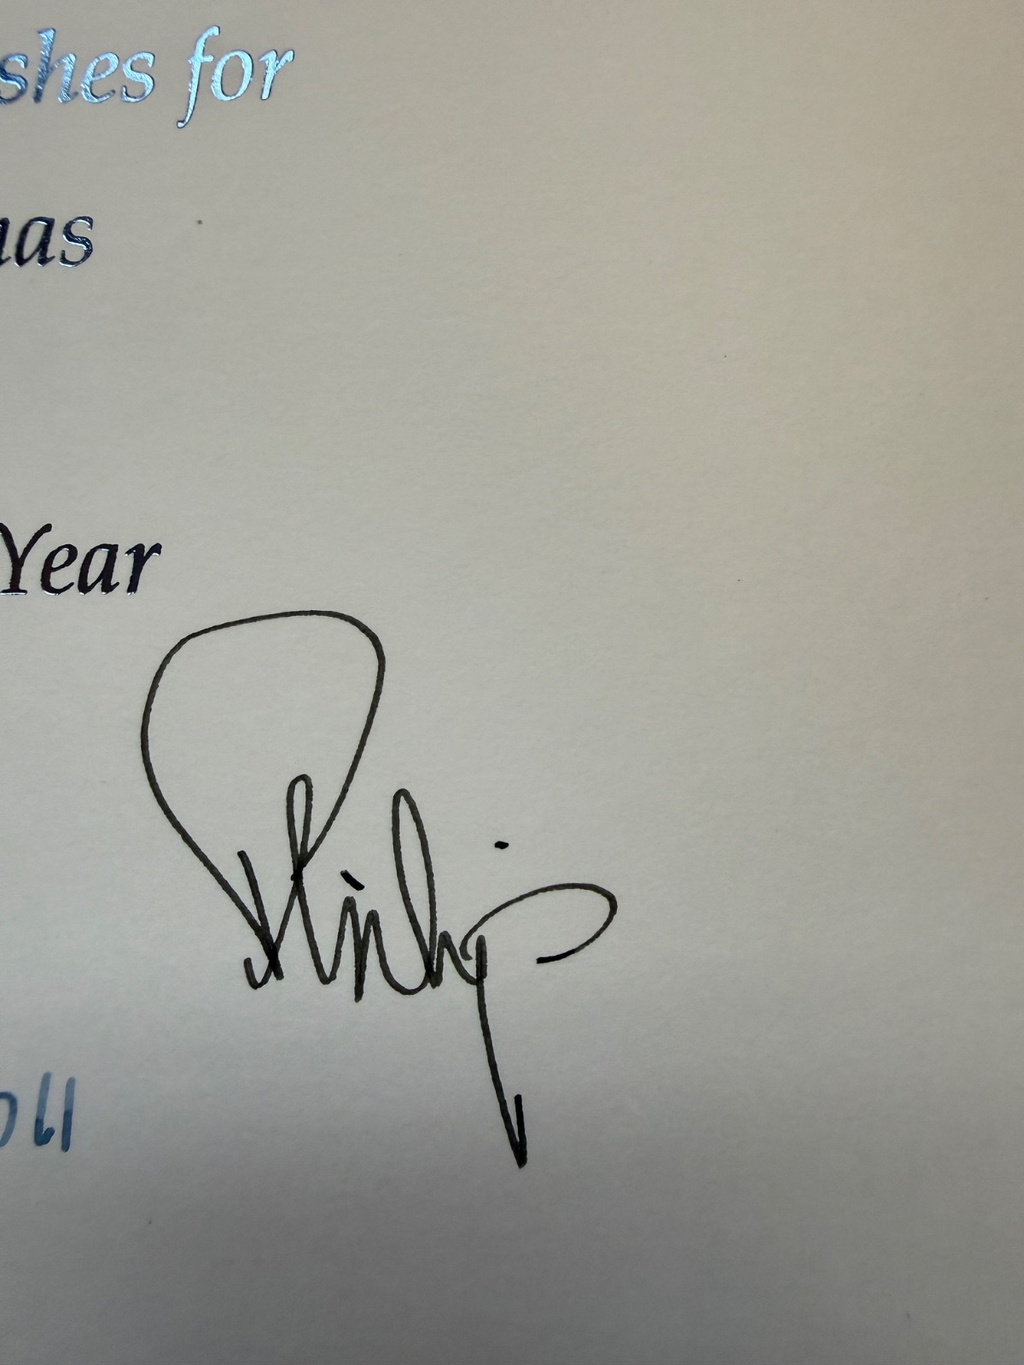 shes for
as
Year
Philip
oll